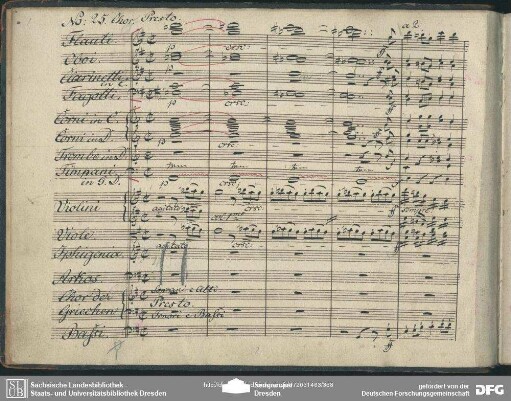 No: 25. Chor. Presto.
a 2.
Flauti.
Oboi.
Clarinetti in C.
Fagotti.
p cresc.
Corni in C.
Corni in D.
Trombe in D.
Timpani in G. D.
trem
cresc.
Violini
agitato
cresc.
sempre
Viole.
agitato
cresc.
Iphigenia.
Arkas.
Soprani e Alti.
Chor der Griechen
Presto.
Tenori e Bassi
Bassi.
ff
SLUB
Sächsische Landesbibliothek
Staats- und Universitätsbibliothek Dresden
Dresden
gefördert von der
Deutschen Forschungsgemeinschaft
DFG